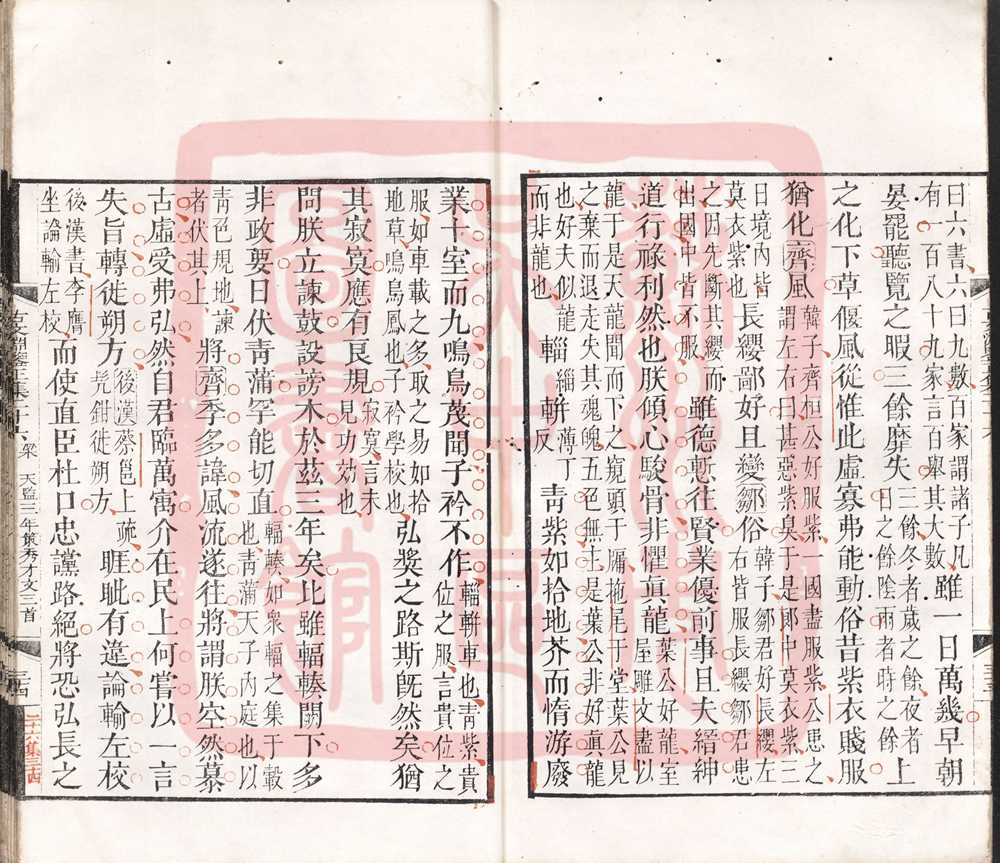 曰六書六曰九數百家謂諸子凡
有一百八十九家言百舉其大數
雖一日萬幾早朝
晏罷聽覽之暇三餘靡失
三餘冬者歲之餘夜者
日之餘陰雨者時之餘
上
之化下草偃風從惟此虛寡弗能動俗昔紫衣賤服
猶化齊風
韓子齊桓公好服紫一國盡服紫公患之
謂左右曰甚惡紫臭于是郎中莫衣紫三
日境內皆
莫衣紫也
長纓鄙好且變鄒俗
韓子鄒君好長纓左
右皆服長纓鄒君患
之因先斷其纓而
出國中皆不服
雖德慙往賢業優前事且夫縉紳
道行祿利然也朕傾心駿骨非懼真龍
葉公好龍室
屋雕文盡以
龍于是天龍聞而下之窺頭于牖拖尾于堂葉公見
之棄而退走失其魂魄五色無主是葉公非好真龍
也好夫似龍
而非龍也
輜緇軿薄丁反
青紫如拾地芥而惰游廢
業十室而九鳴鳥蔑聞子衿不作
輜軿車也青紫貴
位之服言貴位之
服如車載之多取之易如拾
地草鳴鳥鳳也子衿學校也
弘奬之路斯既然矣猶
其寂寞應有良規
寂寞言未
見功效也
問朕立諫鼓設謗木於茲三年矣比雖輻輳闕下多
非政要日伏青蒲罕能切直
輻輳如衆輻之集于轂
也青蒲天子內庭也以
青色規地諫
者伏其上
將齊季多諱風流遂往將謂朕空然慕
古虛受弗弘然自君臨萬㝢介在民上何嘗以一言
失旨轉徙朔方
後漢蔡邕上疏
髠鉗徙朔方
睚眦有違論輸左校
後漢書李膺
坐論輸左校
而使直臣杜口忠讜路絕將恐弘長之
梁 天監三年策秀才文三首